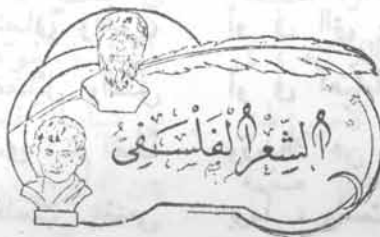 الشِّعْرُ الْفَلْسَفِىُّ